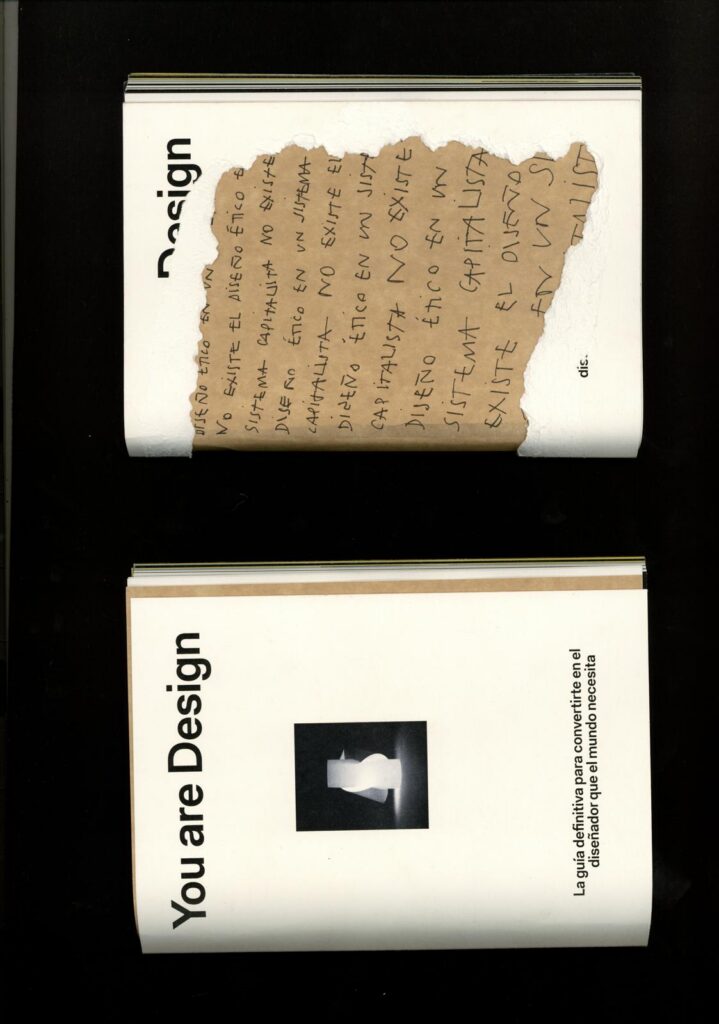 You are Design
La guía definitiva para convertirte en el
diseñador que el mundo necesita
Design
DISEÑO ÉTICO EN UN
NO EXISTE EL DISEÑO ÉTICO E
SISTEMA CAPITALISTA NO EXISTE
DISEÑO ÉTICO EN UN SISTEMA
CAPITALISTA NO EXISTE EL
DISEÑO ÉTICO EN UN SISTE
CAPITALISTA NO EXISTE
DISEÑO ÉTICO EN UN
SISTEMA CAPITALISTA
EXISTE EL DISEÑO
EN UN SI
TALIST
dis.